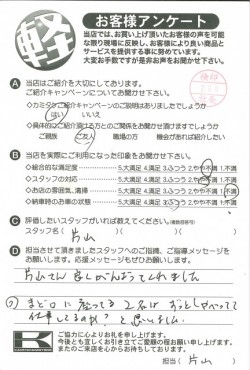 軽
お客様アンケート
当店では、お買い上げ頂いたお客様の声を可能
な限り現場に反映し、お客様により良い商品と
サービスを提供する事に努めております。
大変お手数ですが是非お声をお聞かせ下さい。
A 当店はご紹介を大切にしております。
ご紹介キャンペーンについてお聞かせ下さい。
・カミタケご紹介キャンペーンのご説明はありましたでしょうか
はい いいえ
ご親族 ご友人 職場の方 機会があれば紹介したい
B 当店を実際にご利用になった印象をお聞かせ下さい。
・総合的な満足度 5.大満足 4.満足 3.ふつう 2.やや不満 1.不満
・スタッフの対応 5.大満足 4.満足 3.ふつう 2.やや不満 1.不満
・お店の雰囲気、清掃 5.大満足 4.満足 3.ふつう 2.やや不満 1.不満
・納車時のお車の状態 5.大満足 4.満足 3.ふつう 2.やや不満 1.不満
C 評価したいスタッフがいれば教えてください。
スタッフ名( 片山 )( )
D 担当させて頂きましたスタッフへのご指摘、ご指導メッセージをお
願いします。応援メッセージもぜひお願い致します。
片山さん 良くがんばってくれました
仕事してるのか? と思いました
K
ご協力に心よりお礼を申し上げます。
今後とも宜しくお引き立てご愛顧の程お願い申し上げます。
またのご来店を心からお待ちしております。
担当( 片山 )